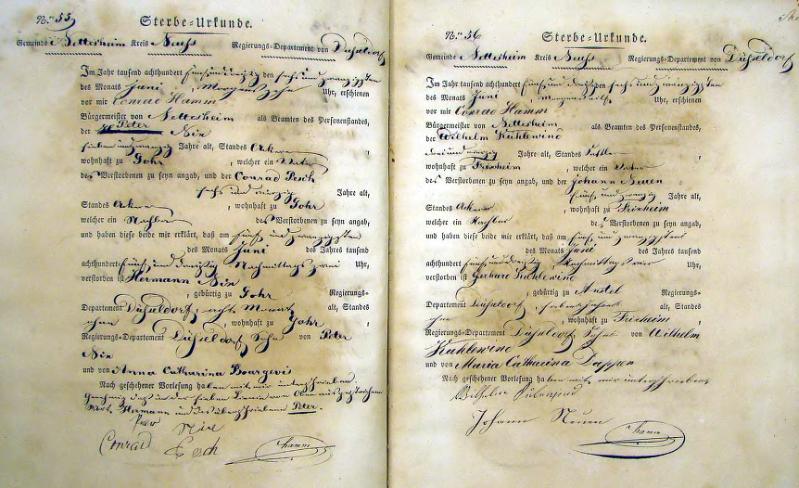 N.° 55
Sterbe-Urkunde.
Gemeinde Nettesheim Kreis Neuss Regierungs-Departement von Düsseldorf
Im Jahr tausend achthundert fünf und dreißig den sechs und zwanzigsten
des Monats Juni, Morgens zehn Uhr, erschienen
vor mir Conrad Hamm
Bürgermeister von Nettesheim als Beamten des Personenstandes,
der Peter Nix
sieben und zwanzig Jahre alt, Standes Ackerer
wohnhaft zu Gohr, welcher ein Vater
des Verstorbenen zu seyn angab, und der Conrad Pesch
sechs und vierzig Jahre alt,
Standes Ackerer, wohnhaft zu Gohr
welcher ein Nachbar des Verstorbenen zu seyn angab,
und haben diese beide mir erklärt, daß am fünf und zwanzigsten
des Monats Juni des Jahres tausend
achthundert fünf und dreißig Nachmittags zwei Uhr,
verstorben ist Hermann Nix
, gebürtig zu Gohr Regierungs-
Departement Düsseldorf, acht Monat alt, Standes
ohne, wohnhaft zu Gohr,
Regierungs-Departement Düsseldorf Sohn von Peter
Nix
und von Anna Catharina Bourgevis
Nach geschehener Vorlesung haben mit mir unterschrieben
Hermann und das überschriebene Peter.
Peter Nix
Conrad Pesch
Hamm
N.° 56
Sterbe-Urkunde.
Gemeinde Nettesheim Kreis Neuss Regierungs-Departement von Düsseldorf
Im Jahr tausend achthundert fünf und dreißig den sechs und zwanzigsten
des Monats Juni, Uhr, erschienen
vor mir Conrad Hamm
Bürgermeister von Nettesheim als Beamten des Personenstandes,
der Wilhelm Kuhlewind
drei und vierzig Jahre alt, Standes
wohnhaft zu Frixheim, welcher ein Vater
des Verstorbenen zu seyn angab, und der Johann Neuen
fünf und zwanzig Jahre alt,
Standes Ackerer, wohnhaft zu Frixheim
welcher ein Nachbar des Verstorbenen zu seyn angab,
und haben diese beide mir erklärt, daß am fünf und zwanzigsten
des Monats Juni des Jahres tausend
achthundert fünf und dreißig, Nachmittags Uhr,
verstorben ist Gerhard Kuhlewind
, gebürtig zu Anstel Regierungs-
Departement Düsseldorf, alt, Standes
ohne, wohnhaft zu Frixheim,
Regierungs-Departement Düsseldorf Sohn von Wilhelm
Kuhlewind
und von Maria Catharina Doppen
Nach geschehener Vorlesung haben mit mir unterschrieben
Wilhelm
Johann Neuen
Hamm